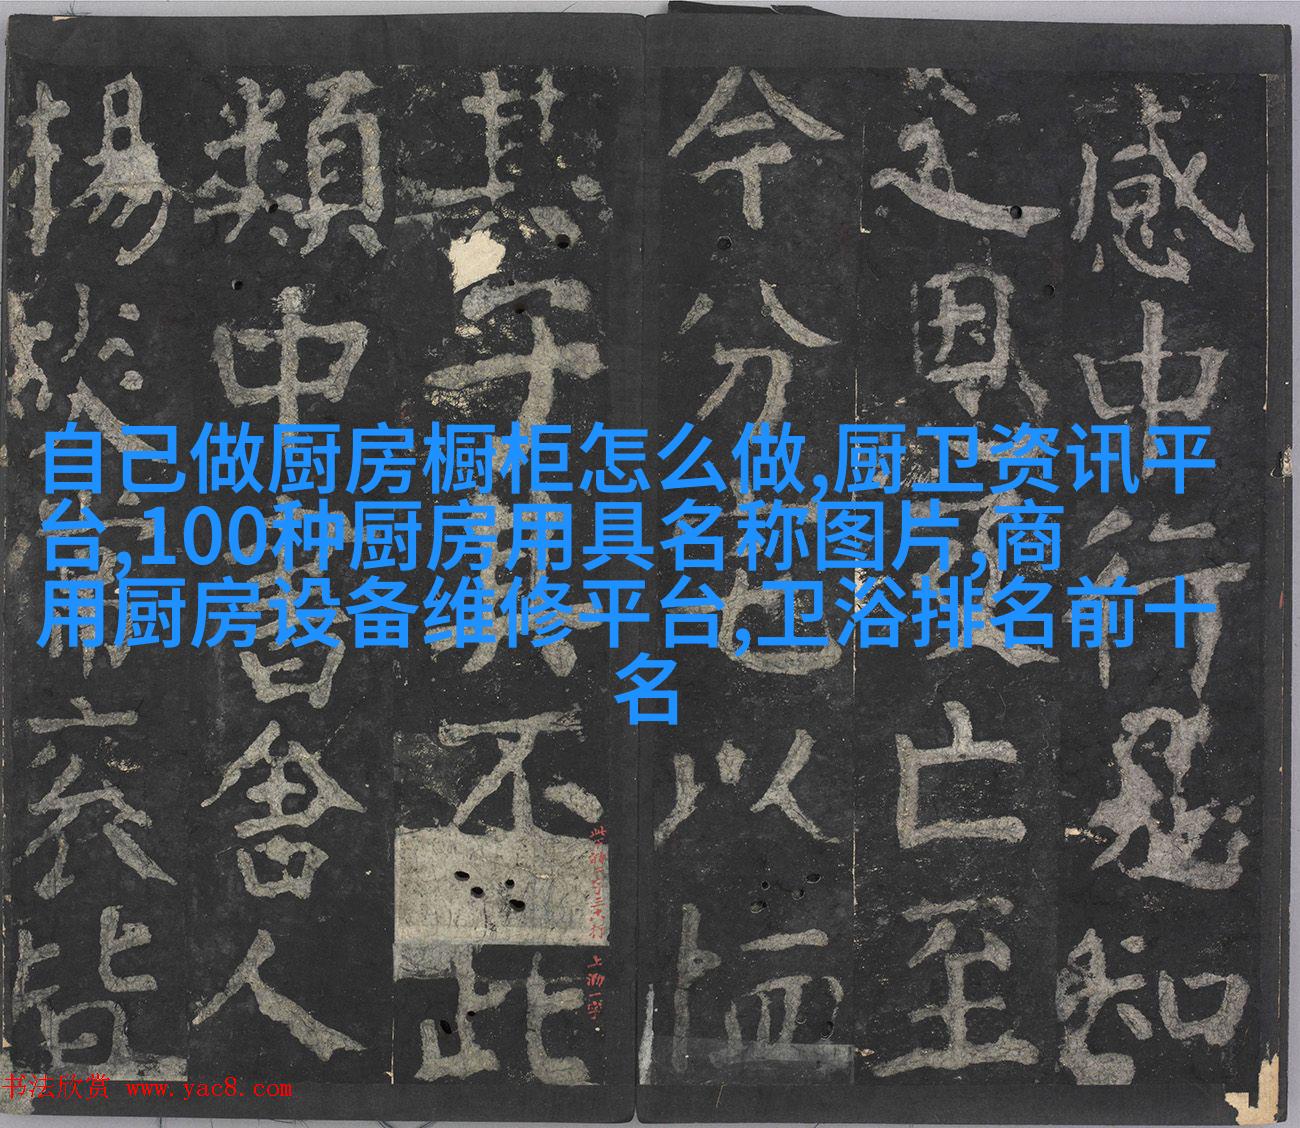 自己做厨房橱柜怎么做,厨卫资讯平
台,100种厨房用具名称图片,商
用厨房设备维修平台,卫浴排名前十
名
感中行知
之亡至
今分也以恤
其于不此
上泐一字
類中書舍人
楊皆
书法欣赏 www.yac8.com